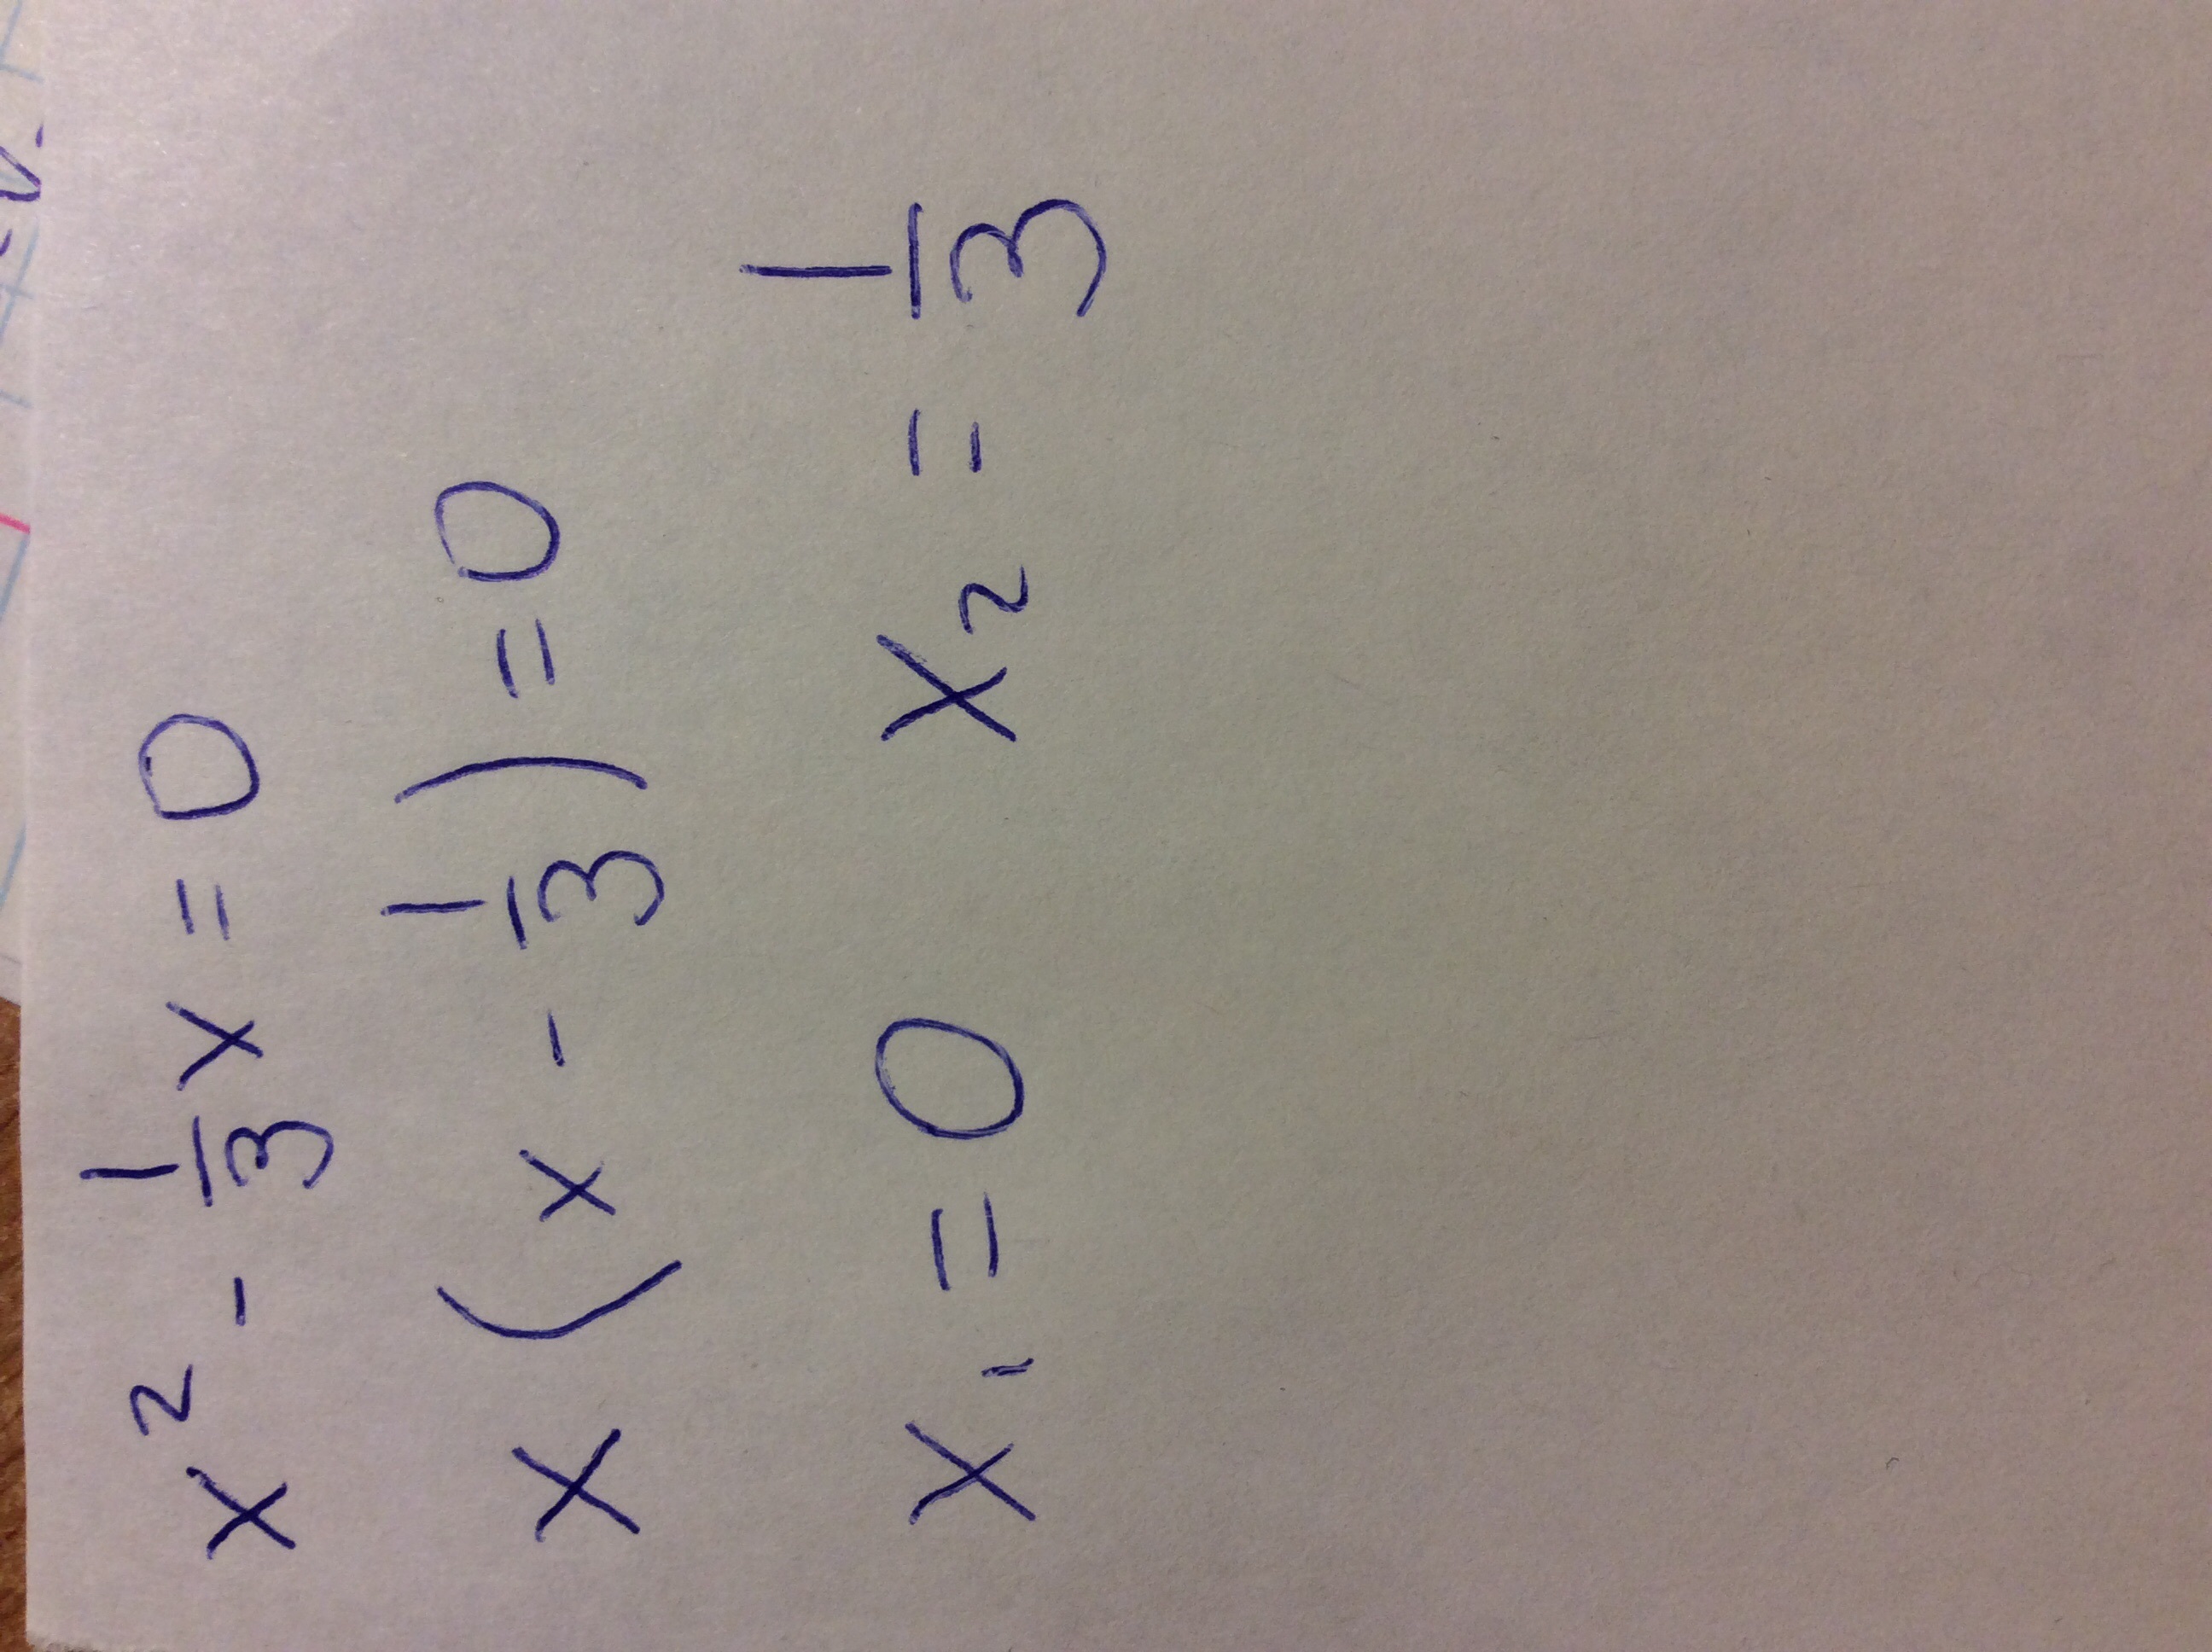 x² - 1/3 x = 0
x (x - 1/3) = 0
x₁ = 0 x₂ = 1/3